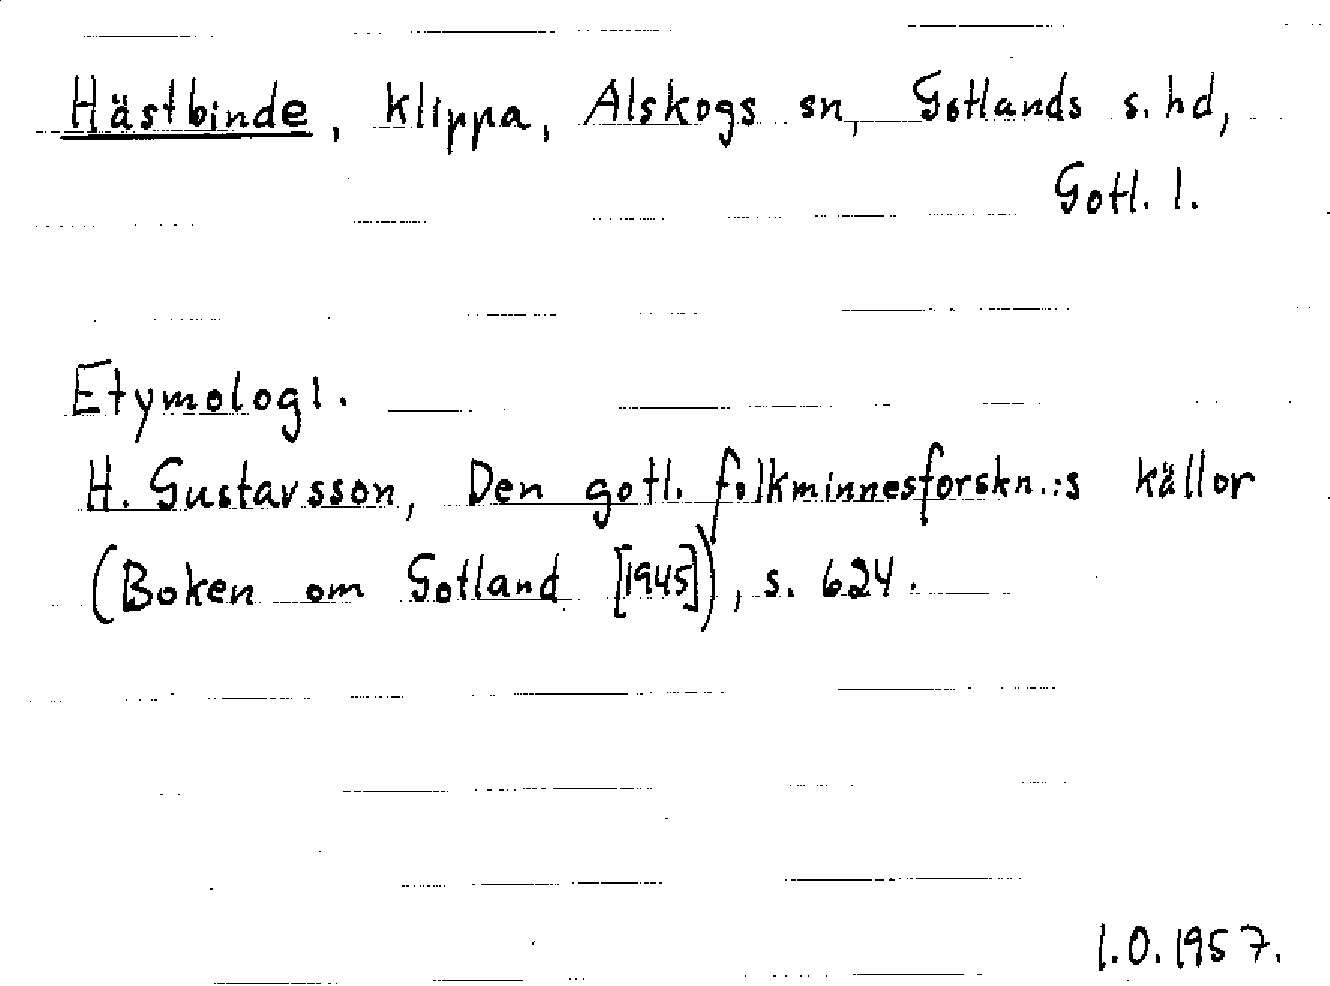 Hästbinde, klippa, Alskogs sn, Gotlands s. hd,
Gotl. l.
Etymologi.
H. Gustavsson, Den gotl. folkminnesforskn.:s källor
(Boken om Gotland [1945]), s. 624.
I.O. 1957.